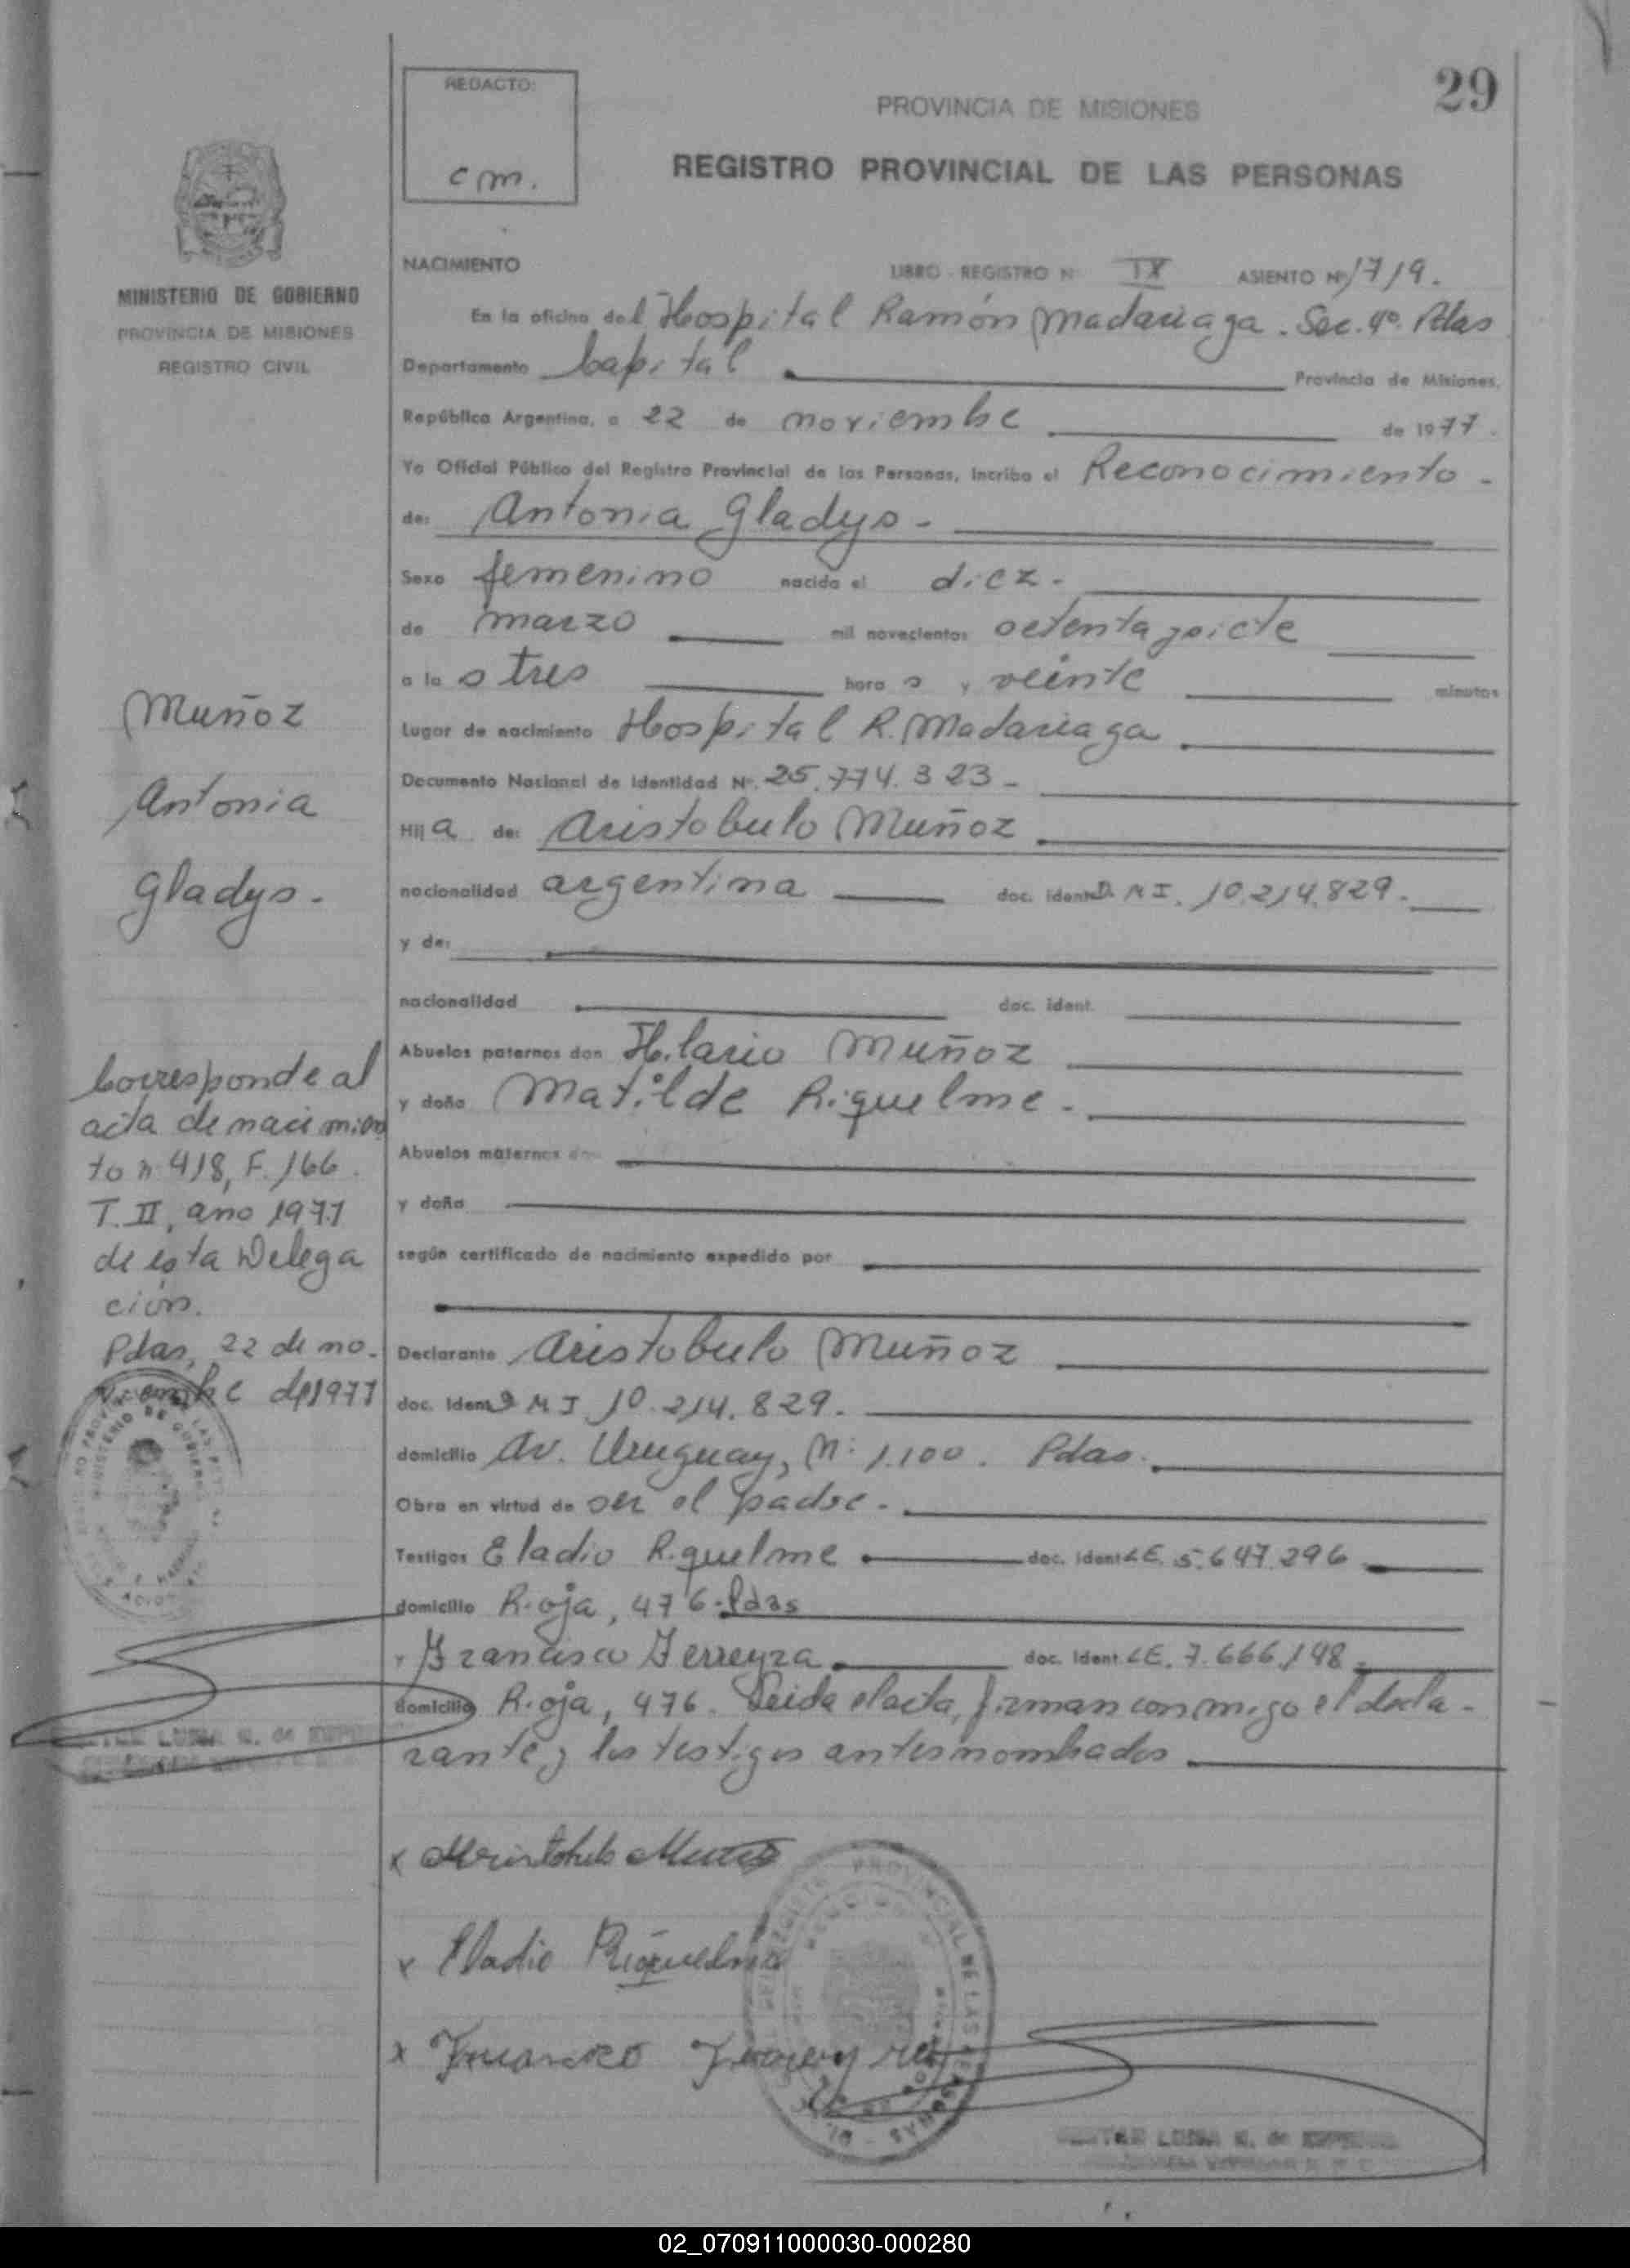 29
REDACTO:
cm.
PROVINCIA DE MISIONES
REGISTRO PROVINCIAL DE LAS PERSONAS
MINISTERIO DE GOBIERNO
PROVINCIA DE MISIONES
REGISTRO CIVIL
NACIMIENTO LIBRO - REGISTRO N° IX ASIENTO Nº 1719.
En la oficina del Hospital Ramón Madariaga. Sec. 4º. Pdas
Departamento Capital Provincia de Misiones,
República Argentina, a 22 de noviembre de 1977.
Yo Oficial Público del Registro Provincial de las Personas, incribo el Reconocimiento -
de: Antonia Gladys -
Sexo femenino nacido el diez -
de marzo mil novecientos setenta y siete
a la s tres hora s y veinte minutos
Lugar de nacimiento Hospital R. Madariaga
Documento Nacional de Identidad Nº. 25.774.323 -
Hij a de: Aristobulo Muñoz
nacionalidad argentina doc. ident. D.N.I. 10.214.829.
y de:
nacionalidad doc. ident.
Abuelos paternos don Hilario Muñoz
y doña Matilde Riquelme -
Abuelos maternos don
y doña
según certificado de nacimiento expedido por
Declarante Aristobulo Muñoz
doc. Ident. D N I 10.214.829.
domicilio Av. Uruguay, Nº 1.100. Pdas.
Obra en virtud de ser el padre -
Testigos Eladio Riquelme doc. ident LE. 5.647.296
domicilio Rioja, 476 - Pdas
y Francisco Ferreyra doc. ident. LE. 7.666.148
domicilio Rioja, 476. Leida el acta, firman conmigo el decla-
rante y los testigos antes nombrados
Muñoz
Antonia
Gladys -
Corresponde al
acta de nacimien
to nº 418, F. 166.
T. II, ano 1977
de esta Delega
ción.
Pdas, 22 de no-
viembre de 1977
x Aristobulo Muñoz
x Eladio Riquelme
x Francisco Ferreyra
PROVINCIAL DE LAS PERSONAS
LUISA N. de
LUISA N. de
02_070911000030-000280